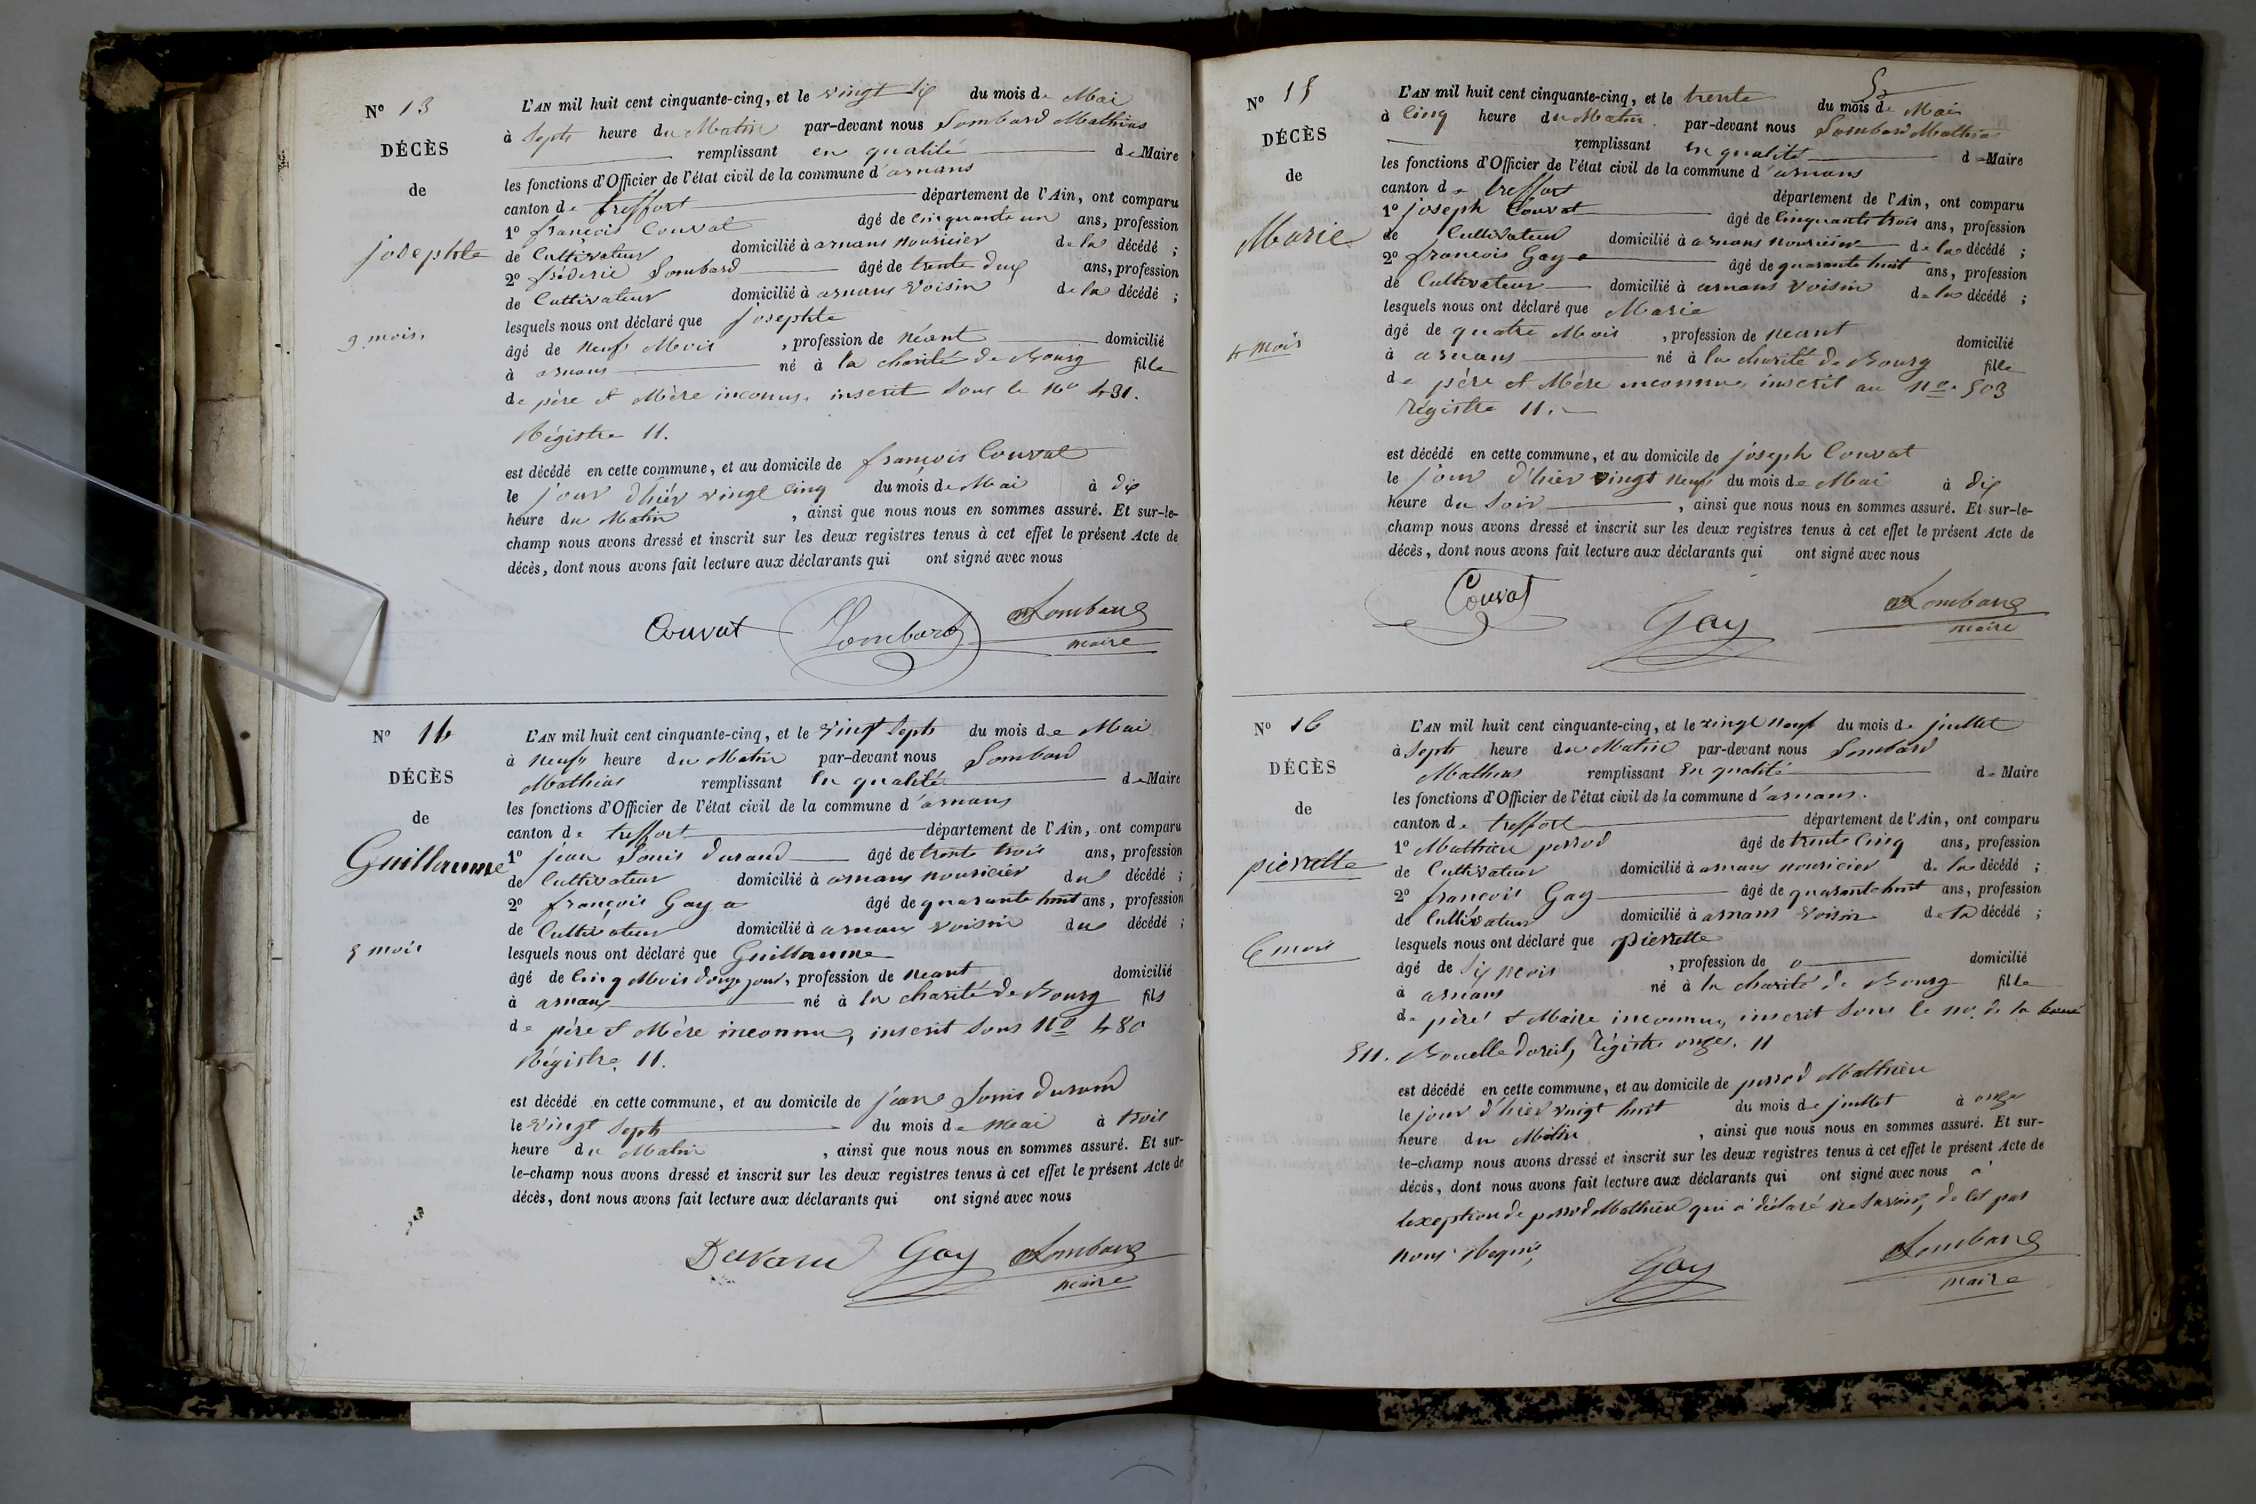 N° 13
DÉCÈS
de
josephte
9 mois,
L'AN mil huit cent cinquante-cinq, et le vingt six du mois de Mai
à Septs heure du Matin par-devant nous Lombard Mathias
remplissant en qualité de Maire
les fonctions d'Officier de l'état civil de la commune d'arnans
canton de treffort département de l'Ain, ont comparu
1° françois Couvat âgé de cinquante un ans, profession
de Cultivateur domicilié à arnans nouricier de la décédé ;
2° fréderic Lombard âgé de trente deux ans, profession
de Cultivateur domicilié à arnans Voisin de la décédé ;
lesquels nous ont déclaré que josephte
âgé de neufs Mois , profession de néant domicilié
à arnans né à la charité de Bourg fille
de père et Mère inconus, inscrit sous le No 431.
Régistre 11.
est décédé en cette commune, et au domicile de françois Couvat
le jour d'hiér vingt cinq du mois de Mai à dix
heure du Matin , ainsi que nous nous en sommes assuré. Et sur-le-
champ nous avons dressé et inscrit sur les deux registres tenus à cet effet le présent Acte de
décès, dont nous avons fait lecture aux déclarants qui ont signé avec nous
Couvat Lombard Lombard
maire
N° 14
DÉCÈS
de
Guillaume
5 mois
L'AN mil huit cent cinquante-cinq, et le vingt Septs du mois de Mai
à neufs heure du Matin par-devant nous Lombard
Mathias remplissant En qualité de Maire
les fonctions d'Officier de l'état civil de la commune d'arnans
canton de treffort département de l'Ain, ont comparu
1° jean Louis durand âgé de trente trois ans, profession
de Cultivateur domicilié à arnans nouricier du décédé ;
2° françois Gay âgé de quarante huit ans, profession
de Cultivateur domicilié à arnans voisin du décédé ;
lesquels nous ont déclaré que Guillaume
âgé de Cinq Mois jour, profession de néant domicilié
à arnans né à la charité de Bourg fils
de père et Mère inconnu, inscrit sous No 480
Régistre 11.
est décédé en cette commune, et au domicile de jean Louis durand
le vingt Septs du mois de mai à trois
heure du Matin , ainsi que nous nous en sommes assuré. Et sur-
le-champ nous avons dressé et inscrit sur les deux registres tenus à cet effet le présent Acte de
décès, dont nous avons fait lecture aux déclarants qui ont signé avec nous
Durand Gay Lombard
maire
N° 15
DÉCÈS
de
Marie
4 mois
L'AN mil huit cent cinquante-cinq, et le trente du mois de Mai
à Cinq heure du Matin par-devant nous Lombard Mathias
remplissant En qualité de Maire
les fonctions d'Officier de l'état civil de la commune d'arnans
canton de treffort département de l'Ain, ont comparu
1° joseph Couvat âgé de Cinquante trois ans, profession
de Cultivateur domicilié à arnans nouricier de la décédé ;
2° françois Gay âgé de quarante huit ans, profession
de Cultivateur domicilié à arnans voisin de la décédé ;
lesquels nous ont déclaré que Marie
âgé de quatre Mois , profession de néant domicilié
à arnans né à la charité de Bourg fille
de père et Mère inconnu, inscrit au No 503
régistre 11.
est décédé en cette commune, et au domicile de joseph Couvat
le jour d'hier vingt neufs du mois de Mai à dix
heure du Soir , ainsi que nous nous en sommes assuré. Et sur-le-
champ nous avons dressé et inscrit sur les deux registres tenus à cet effet le présent Acte de
décès, dont nous avons fait lecture aux déclarants qui ont signé avec nous
Couvat Gay Lombard
maire
N° 16
DÉCÈS
de
pierrette
6 mois
L'AN mil huit cent cinquante-cinq, et le vingt neuf du mois de juillet
à Septs heure du Matin par-devant nous Lombard
Mathias remplissant En qualité de Maire
les fonctions d'Officier de l'état civil de la commune d'arnans.
canton de treffort département de l'Ain, ont comparu
1° Mathieu perrod âgé de trente Cinq ans, profession
de Cultivateur domicilié à arnans nouricier de la décédé ;
2° françois Gay âgé de quarante huit ans, profession
de Cultivateur domicilié à arnans voisin de la décédé ;
lesquels nous ont déclaré que pierrette
âgé de Six mois , profession de domicilié
à arnans né à la charité de Bourg fille
de péré et Maire inconnu, inscrit sous le no. de la
511. Bouelle doreil, régistre onze. 11
est décédé en cette commune, et au domicile de perrod Mathieu
le jour d'hier vingt huit du mois de juillet à onze
heure du Matin , ainsi que nous nous en sommes assuré. Et sur-
le-champ nous avons dressé et inscrit sur les deux registres tenus à cet effet le présent Acte de
décès, dont nous avons fait lecture aux déclarants qui ont signé avec nous a
lexeption de perrod Mathieu qui a déclaré ne savoir, de par
nous Requis,
Gay Lombard
maire